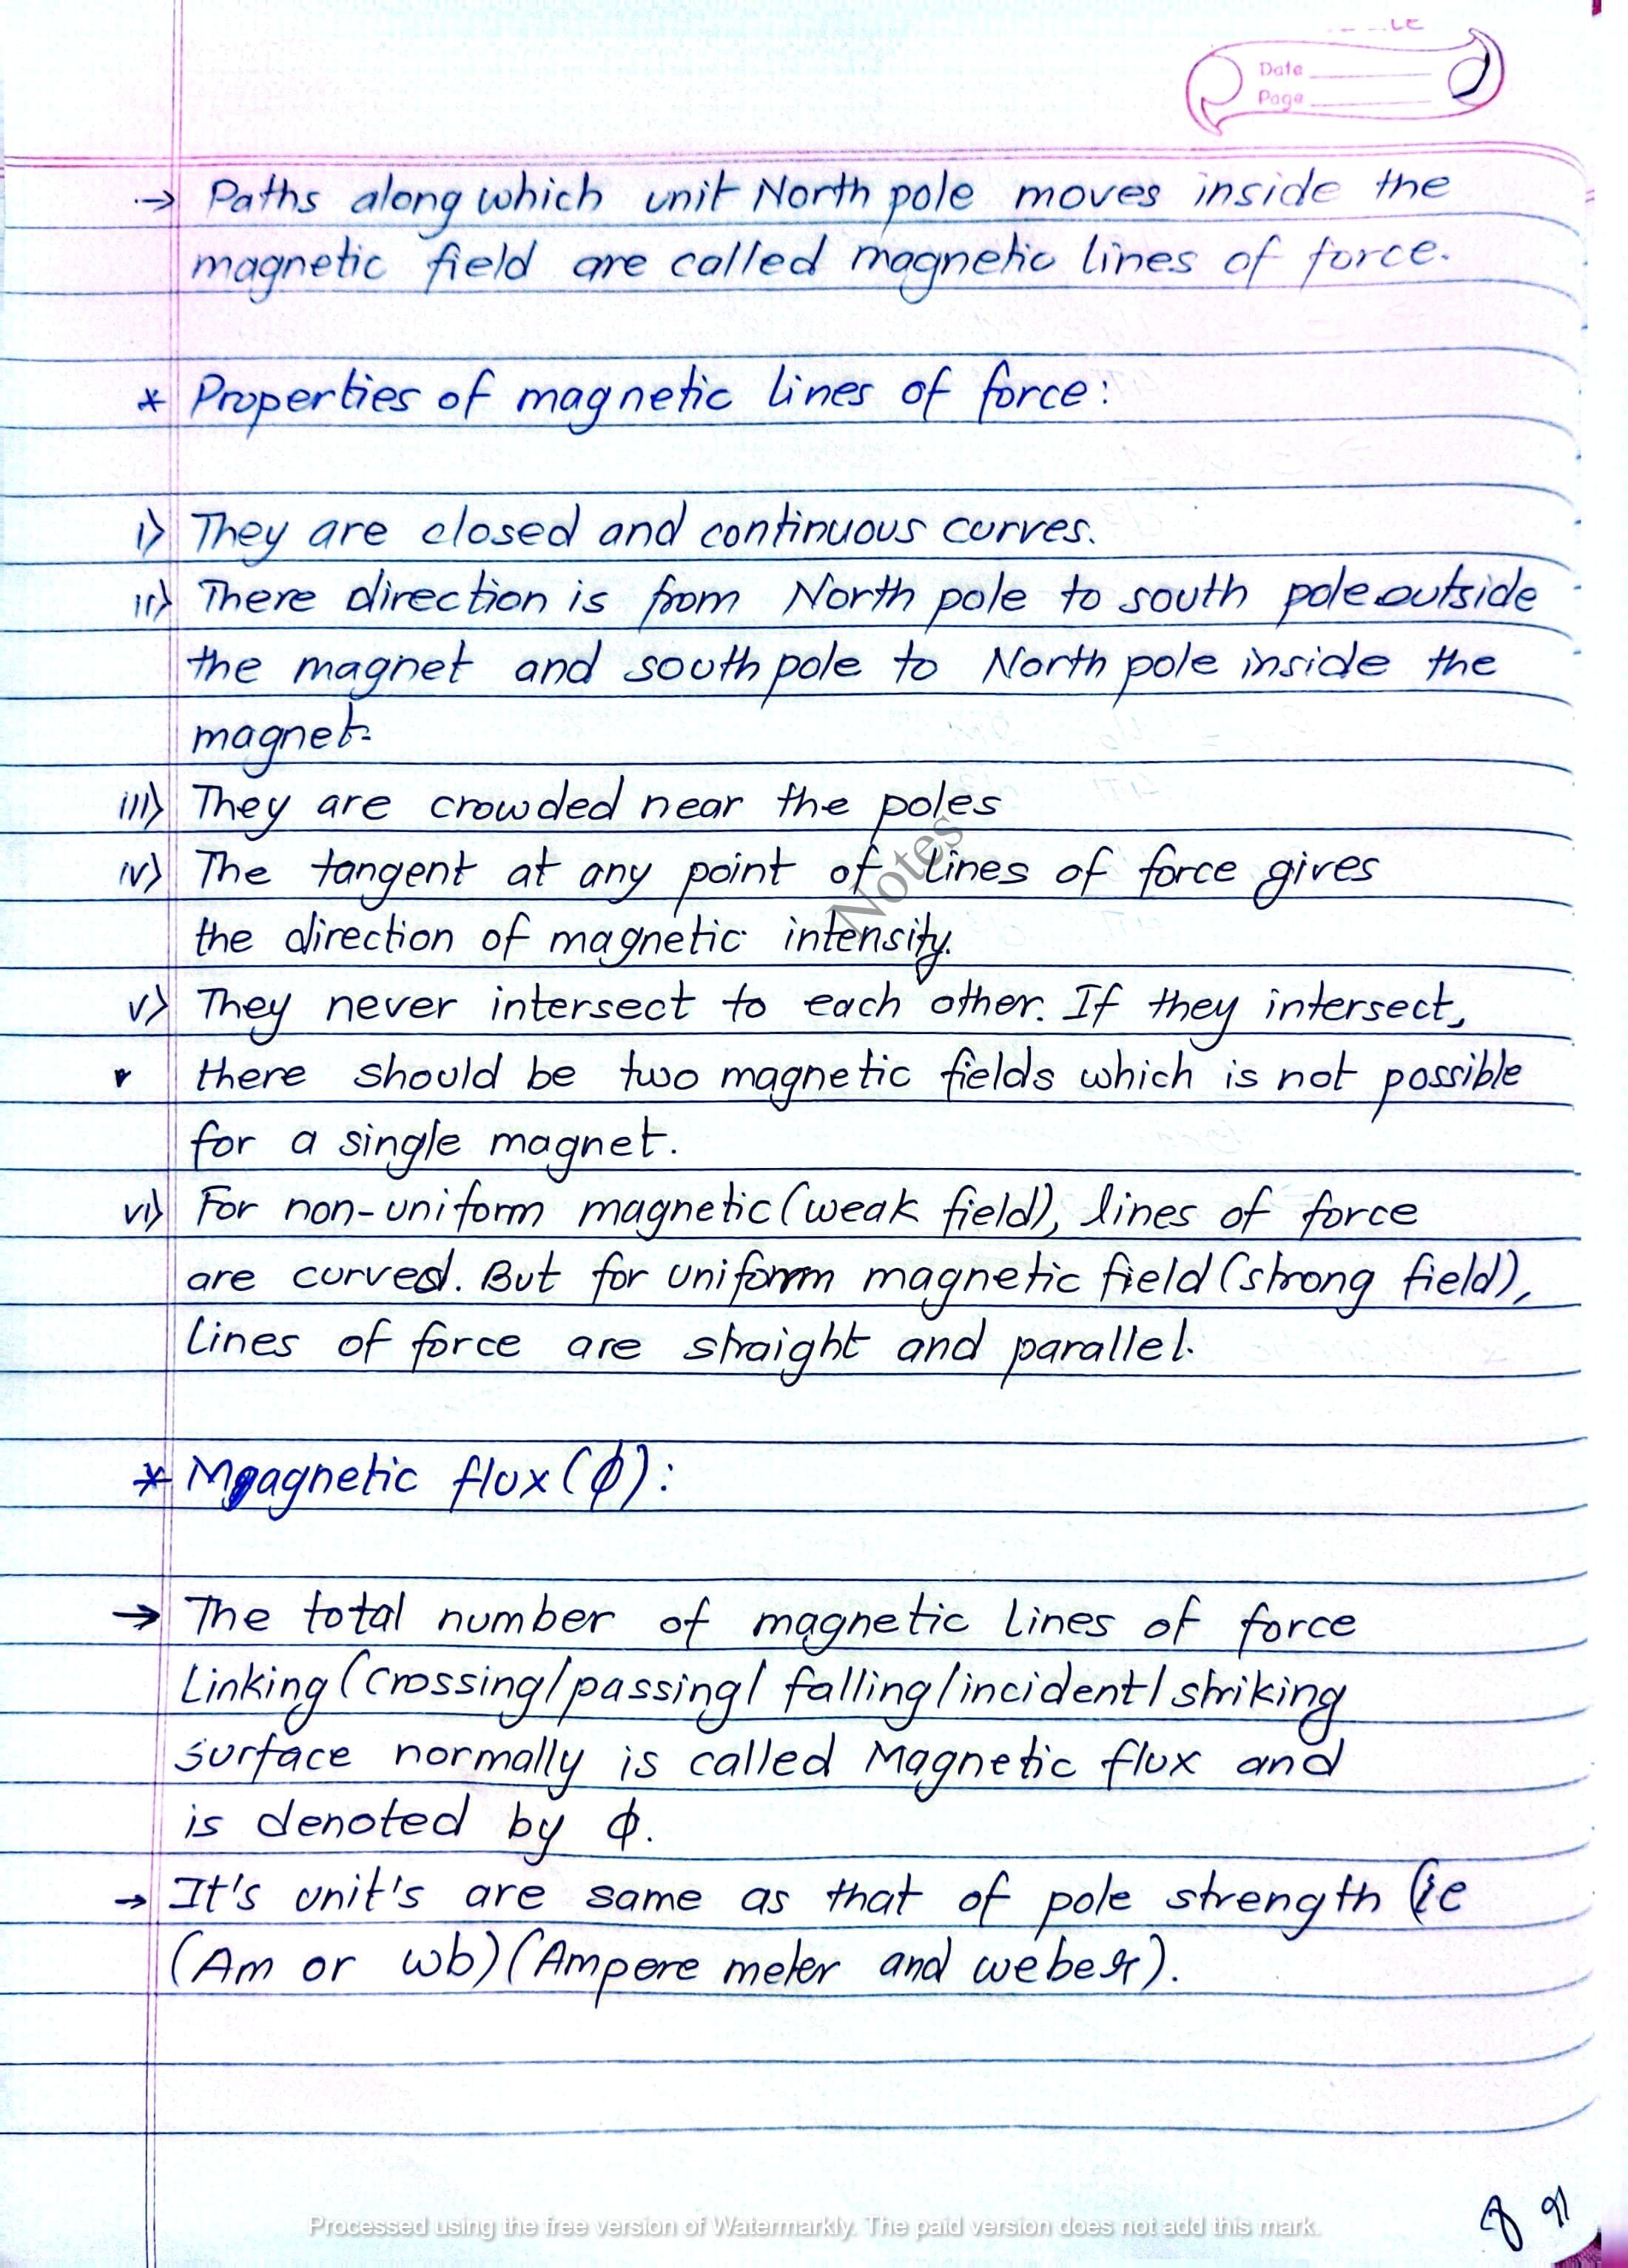 Date
Page
→ Paths along which unit North pole moves inside the
magnetic field are called magnetic lines of force.
* Properties of magnetic lines of force:
i) They are closed and continuous curves.
ii) There direction is from North pole to south pole outside
the magnet and south pole to North pole inside the
magnet.
iii) They are crowded near the poles
iv) The tangent at any point of lines of force gives
the direction of magnetic intensity.
v) They never intersect to each other. If they intersect,
there should be two magnetic fields which is not possible
for a single magnet.
vi) For non-uniform magnetic (weak field), lines of force
are curved. But for uniform magnetic field (strong field),
lines of force are straight and parallel.
* Magnetic flux (ϕ):
→ The total number of magnetic lines of force
Linking (crossing/passing/ falling/incident/striking
surface normally is called Magnetic flux and
is denoted by ϕ.
→ It's unit's are same as that of pole strength (ie
(Am or wb) (Ampere meter and weber).
Notes
Processed using the free version of Watermarkly. The paid version does not add this mark.